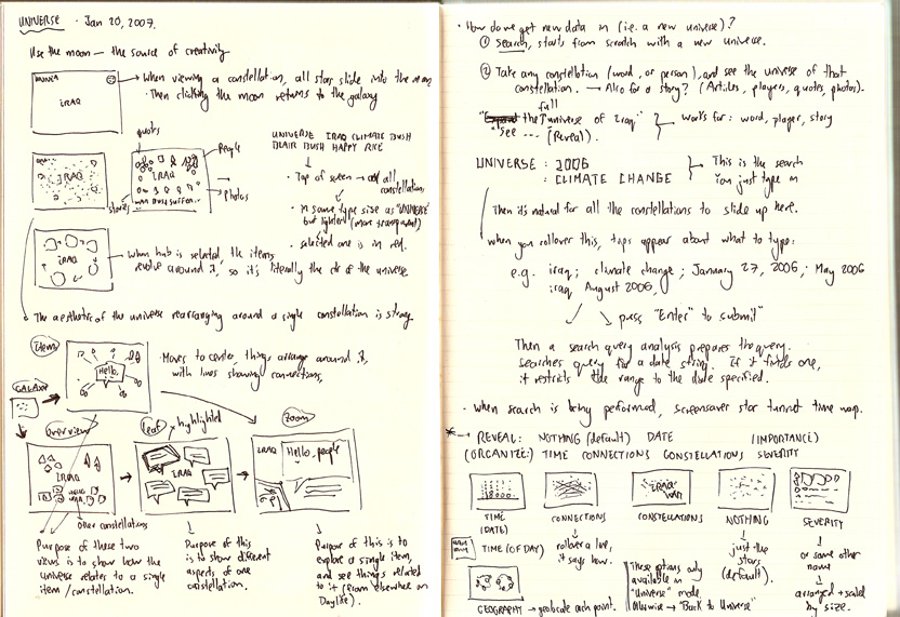 UNIVERSE · Jan 20, 2007.
Use the moon — the source of creativity
IRAQ
When viewing a constellation, all stars slide into the moon
· Then clicking the moon returns to the galaxy
quotes
People
IRAQ
IRAQ
stories
Photos
UNIVERSE IRAQ CLIMATE BUSH
BLAIR BUSH HAPPY RICE
· Top of screen → all
constellations
· In same type size as "UNIVERSE"
but lighter (more transparent)
· selected one is in red.
IRAQ
When hub is selected, the items
revolve around it, so it's literally the ctr of the universe
The aesthetic of the universe rearranging around a single constellation is strong.
Item
GALAXY
Hello.
· Moves to center, things arrange around it,
with lines showing connections,
Overview
IRAQ
Leaf
highlighted
IRAQ
Zoom
IRAQ
Hello, people
other constellations
Purpose of these two
views is to show how the
universe relates to a single
item/constellation.
Purpose of this
is to show different
aspects of one
constellation.
Purpose of this is to
explore a single item,
and see things related
to it (from elsewhere on
Daylife).
· How do we get new data in (i.e. a new universe)?
① Search, starts from scratch with a new universe.
② Take any constellation (word, or person), and see the universe of that
constellation. → Also for a story? (Articles, players, quotes, photos).
full
the universe of Iraq"
"see ... (Reveal).
works for: word, player, story
UNIVERSE : 2006
: CLIMATE CHANGE
This is the search
You just type in
Then it's natural for all the constellations to slide up here.
when you rollover this, tips appear about what to type:
e.g. iraq; climate change; January 27, 2006; May 2006
iraq August 2006,
press "Enter" to submit"
Then a search query analysis prepares the query.
Searches query for a date string. If it finds one,
it restricts the range to the date specified.
· When search is being performed, screensaver star tunnel time warp.
* → REVEAL: NOTHING (default) DATE (IMPORTANCE)
(ORGANIZE:) TIME CONNECTIONS CONSTELLATIONS SEVERITY
IRAQ
WAR
TIME
(DATE)
CONNECTIONS
CONSTELLATIONS
NOTHING
SEVERITY
TIME (OF DAY)
rollover a line,
it says how.
just the
stars
(default).
or some other
name
arranged + scaled
by size.
These options only
available in
"Universe" mode
Otherwise → "Back to Universe"
GEOGRAPHY → geolocate each point.